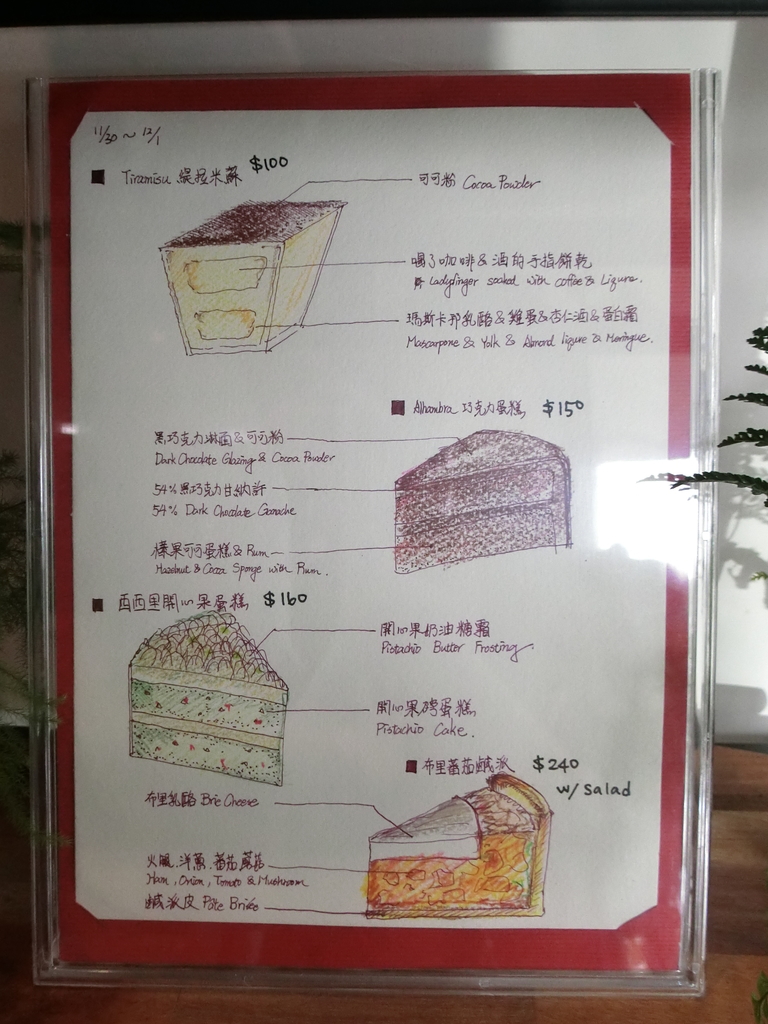 11/30 ~ 12/1
Tiramisu 緹拉米蘇 $100
可可粉 Cocoa Powder
喝了咖啡&酒的手指餅乾
Ladyfinger soaked with coffee & Liqure.
瑪斯卡邦乳酪&雞蛋&杏仁酒&蛋白霜
Mascarpone & Yolk & Almond liqure & Meringue.
Alhambra 巧克力蛋糕 $150
黑巧克力淋面&可可粉
Dark Chocolate Glazing & Cocoa Powder
54%黑巧克力甘納許
54% Dark Chocolate Ganache
榛果可可蛋糕&Rum
Hazelnut & Cocoa Sponge with Rum.
西西里開心果蛋糕 $160
開心果奶油糖霜
Pistachio Butter Frosting.
開心果磅蛋糕
Pistachio Cake.
布里蕃茄鹹派 $240
w/ salad
布里乳酪 Brie Cheese
火腿.洋蔥.蕃茄蘑菇
Ham, Onion, Tomato & Mushroom
鹹派皮 Pâte Brisée